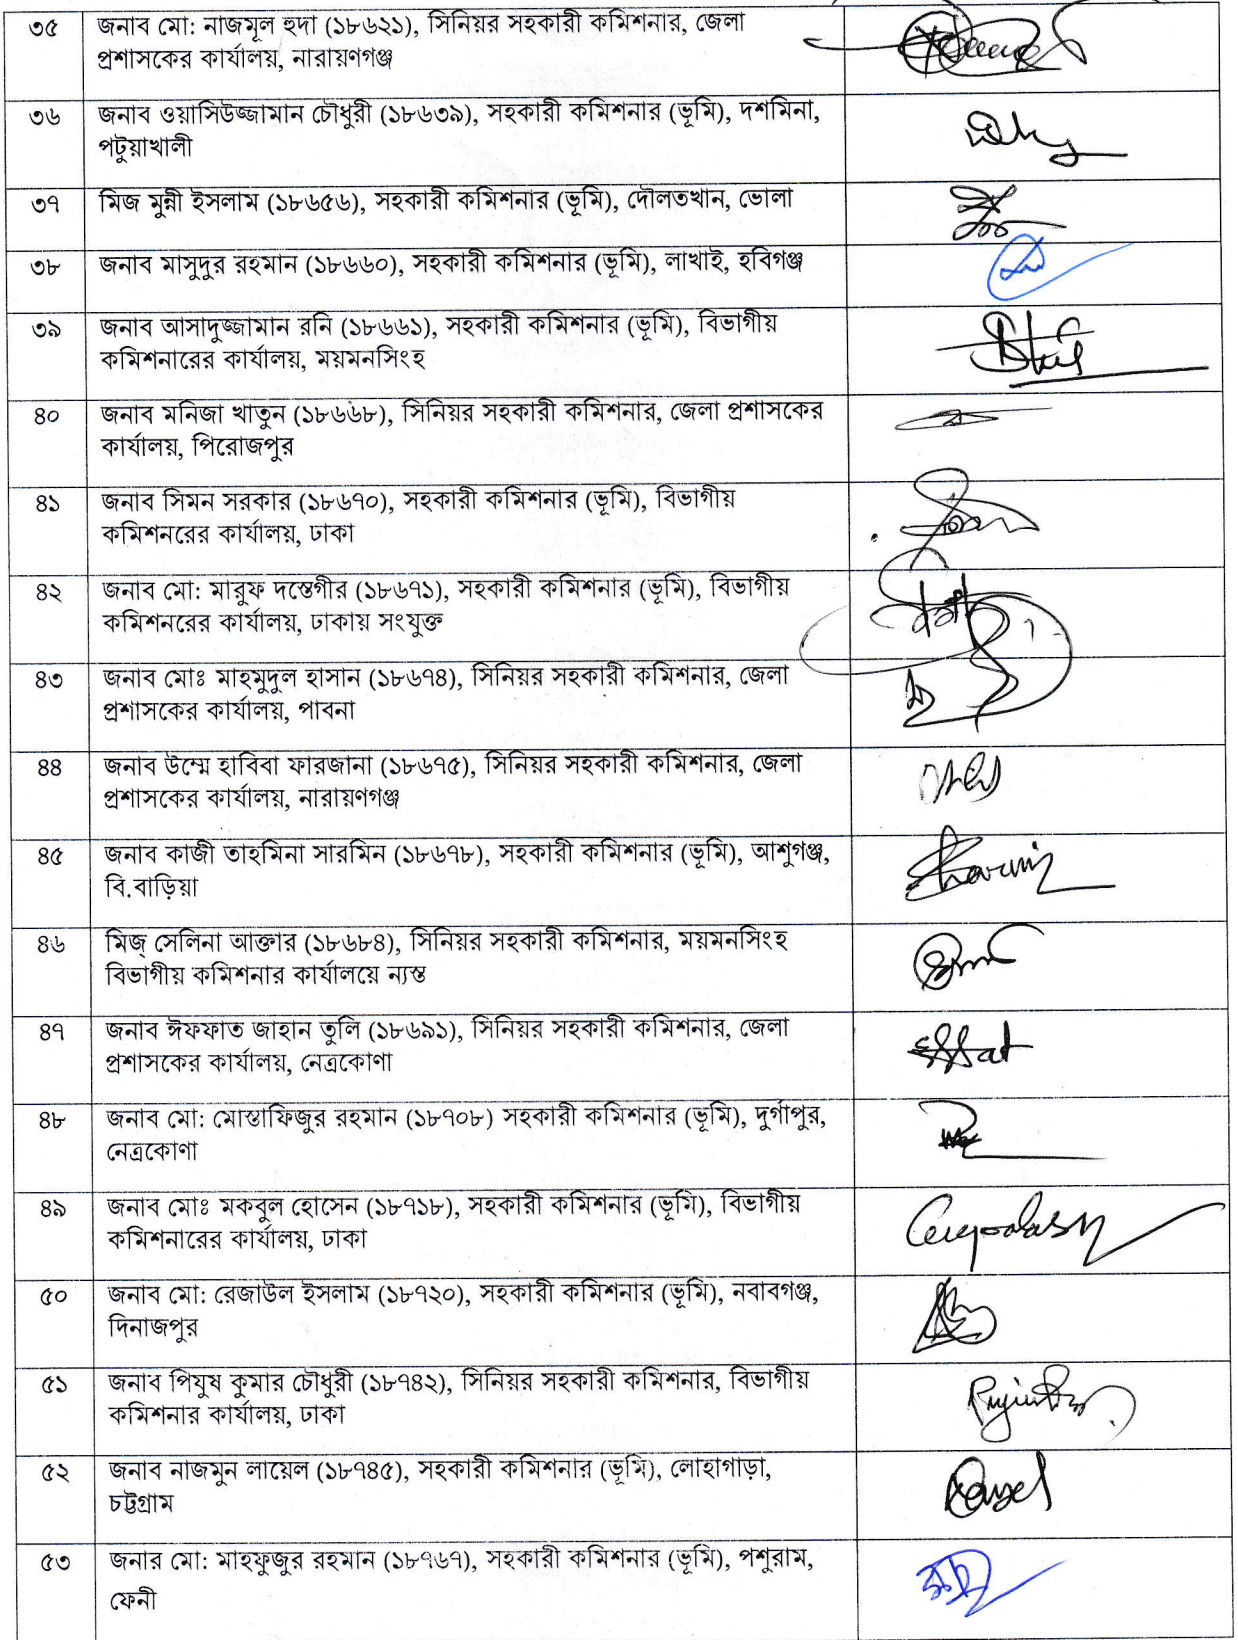 ৩৫ জনাব মো: নাজমূল হুদা (১৮৬২১), সিনিয়র সহকারী কমিশনার, জেলা
প্রশাসকের কার্যালয়, নারায়ণগঞ্জ
৩৬ জনাব ওয়াসিউজ্জামান চৌধুরী (১৮৬৩৯), সহকারী কমিশনার (ভূমি), দশমিনা,
পটুয়াখালী
৩৭ মিজ মুন্নী ইসলাম (১৮৬৫৬), সহকারী কমিশনার (ভূমি), দৌলতখান, ভোলা
৩৮ জনাব মাসুদুর রহমান (১৮৬৬০), সহকারী কমিশনার (ভূমি), লাখাই, হবিগঞ্জ
৩৯ জনাব আসাদুজ্জামান রনি (১৮৬৬১), সহকারী কমিশনার (ভূমি), বিভাগীয়
কমিশনারের কার্যালয়, ময়মনসিংহ
৪০ জনাব মনিজা খাতুন (১৮৬৬৮), সিনিয়র সহকারী কমিশনার, জেলা প্রশাসকের
কার্যালয়, পিরোজপুর
৪১ জনাব সিমন সরকার (১৮৬৭০), সহকারী কমিশনার (ভূমি), বিভাগীয়
কমিশনরের কার্যালয়, ঢাকা
৪২ জনাব মো: মারুফ দস্তেগীর (১৮৬৭১), সহকারী কমিশনার (ভূমি), বিভাগীয়
কমিশনরের কার্যালয়, ঢাকায় সংযুক্ত
৪৩ জনাব মোঃ মাহমুদুল হাসান (১৮৬৭৪), সিনিয়র সহকারী কমিশনার, জেলা
প্রশাসকের কার্যালয়, পাবনা
৪৪ জনাব উম্মে হাবিবা ফারজানা (১৮৬৭৫), সিনিয়র সহকারী কমিশনার, জেলা
প্রশাসকের কার্যালয়, নারায়ণগঞ্জ
৪৫ জনাব কাজী তাহমিনা সারমিন (১৮৬৭৮), সহকারী কমিশনার (ভূমি), আশুগঞ্জ,
বি.বাড়িয়া
৪৬ মিজ্ সেলিনা আক্তার (১৮৬৮৪), সিনিয়র সহকারী কমিশনার, ময়মনসিংহ
বিভাগীয় কমিশনার কার্যালয়ে ন্যস্ত
৪৭ জনাব ঈফফাত জাহান তুলি (১৮৬৯১), সিনিয়র সহকারী কমিশনার, জেলা
প্রশাসকের কার্যালয়, নেত্রকোণা
৪৮ জনাব মো: মোস্তাফিজুর রহমান (১৮৭০৮) সহকারী কমিশনার (ভূমি), দুর্গাপুর,
নেত্রকোণা
৪৯ জনাব মোঃ মকবুল হোসেন (১৮৭১৮), সহকারী কমিশনার (ভূমি), বিভাগীয়
কমিশনারের কার্যালয়, ঢাকা
৫০ জনাব মো: রেজাউল ইসলাম (১৮৭২০), সহকারী কমিশনার (ভূমি), নবাবগঞ্জ,
দিনাজপুর
৫১ জনাব পিযুষ কুমার চৌধুরী (১৮৭৪২), সিনিয়র সহকারী কমিশনার, বিভাগীয়
কমিশনার কার্যালয়, ঢাকা
৫২ জনাব নাজমুন লায়েল (১৮৭৪৫), সহকারী কমিশনার (ভূমি), লোহাগাড়া,
চট্টগ্রাম
৫৩ জনার মো: মাহফুজুর রহমান (১৮৭৬৭), সহকারী কমিশনার (ভূমি), পশুরাম,
ফেনী